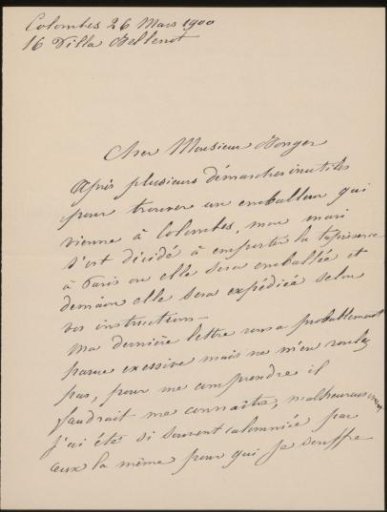 Colombes 26 Mars 1900
16 Villa
Cher Monsieur Bonger
Après plusieurs démarches inutiles
pour trouver un emballeur qui
vienne à Colombes, mon mari
s'est décidé à emporter la tapisserie
à Paris ou elle sera emballée et
demain elle sera expédiée selon
vos instruction_
Ma dernière lettre vous a probablement
parue excessive mais ne m'en voulez
pas, pour me comprendre il
faudrait me connaître, malheureusement
j'ai étés si souvent calomniée par
ceux la même pour qui je souffre